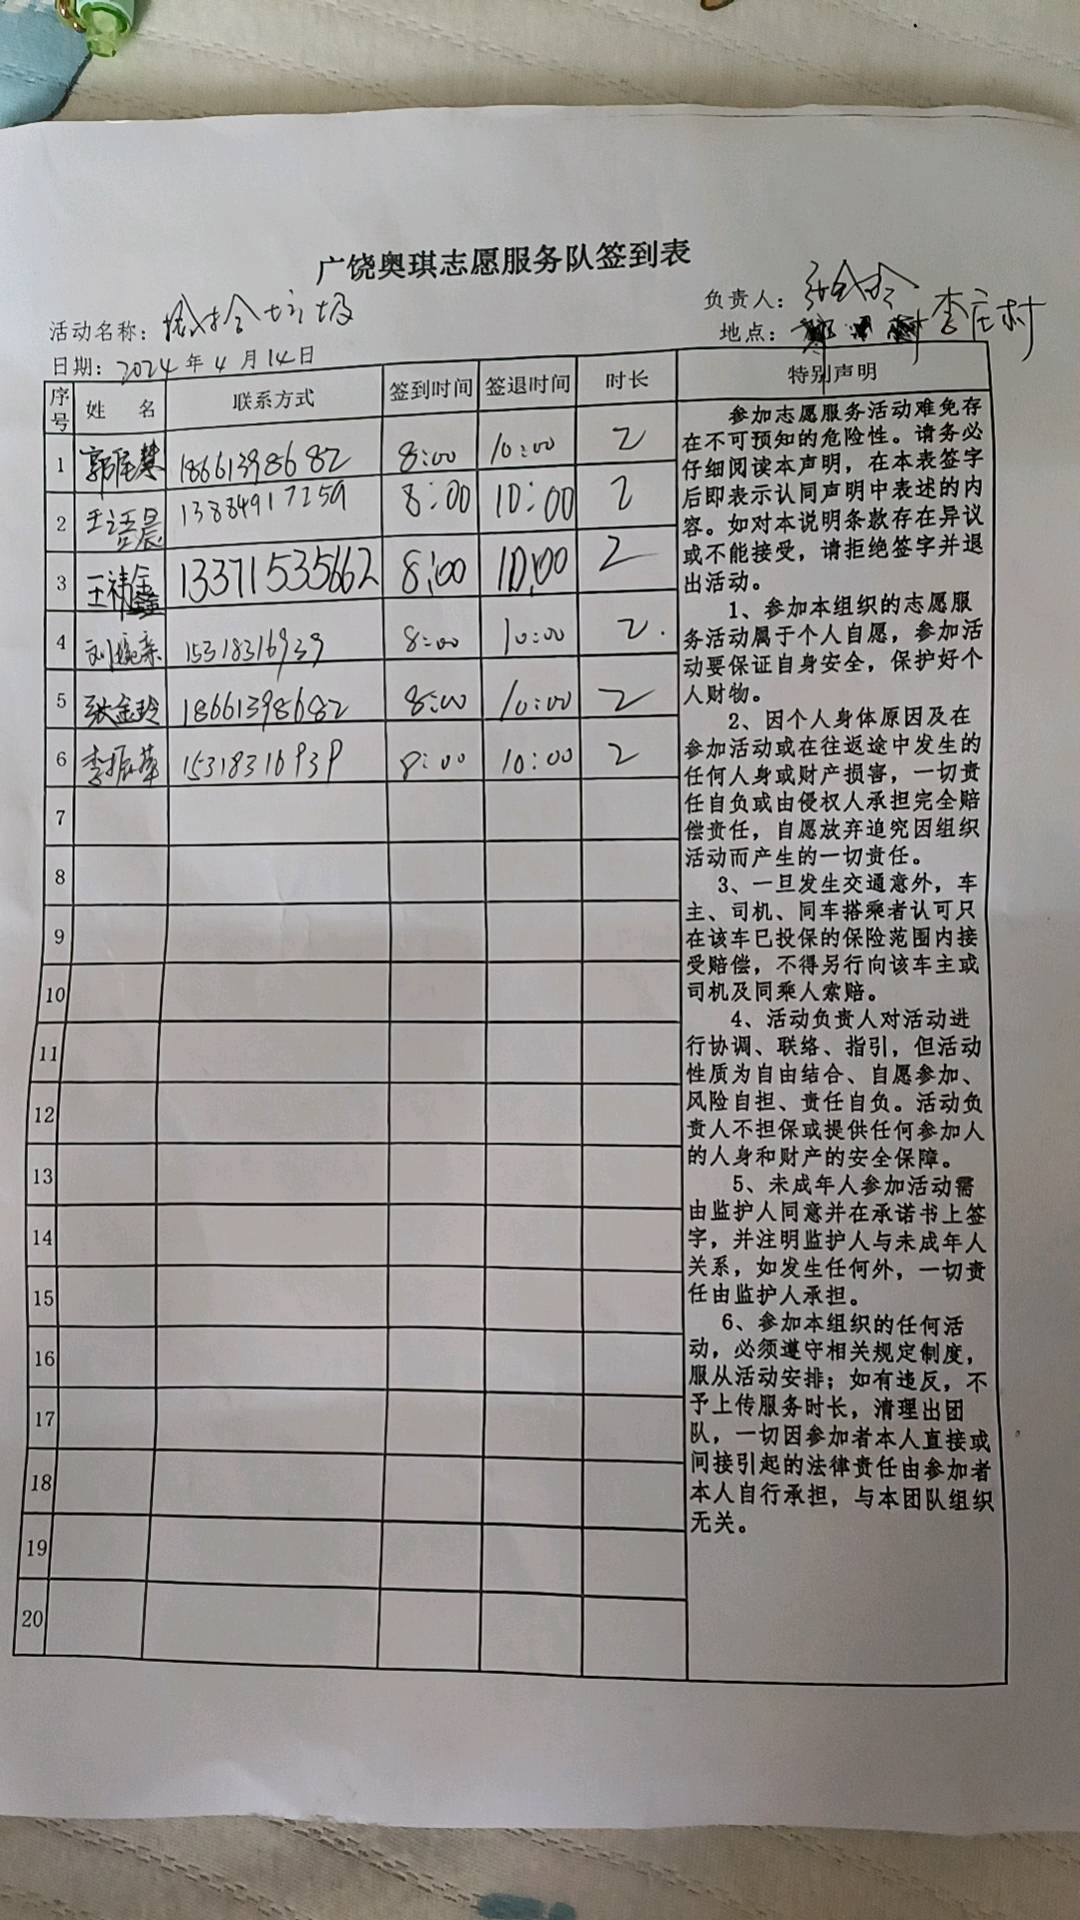 广饶奥琪志愿服务队签到表
活动名称：捡拾垃圾 负责人：
日期：2024年4月14日 地点：李庄村
序号 姓名 联系方式 签到时间 签退时间 时长 特别声明
1 郭 慧 18661398682 8:00 10:00 2
2 王 晨 13884917259 8:00 10:00 2
3 王祎鑫 13371535662 8:00 10:00 2
4 刘婉亲 15318316939 8:00 10:00 2
5 张金玲 18661398682 8:00 10:00 2
6 李振苹 15318316939 8:00 10:00 2
7
8
9
10
11
12
13
14
15
16
17
18
19
20
参加志愿服务活动难免存
在不可预知的危险性。请务必
仔细阅读本声明，在本表签字
后即表示认同声明中表述的内
容。如对本说明条款存在异议
或不能接受，请拒绝签字并退
出活动。
1、参加本组织的志愿服
务活动属于个人自愿，参加活
动要保证自身安全，保护好个
人财物。
2、因个人身体原因及在
参加活动或在往返途中发生的
任何人身或财产损害，一切责
任自负或由侵权人承担完全赔
偿责任，自愿放弃追究因组织
活动而产生的一切责任。
3、一旦发生交通意外，车
主、司机、同车搭乘者认可只
在该车已投保的保险范围内接
受赔偿，不得另行向该车主或
司机及同乘人索赔。
4、活动负责人对活动进
行协调、联络、指引，但活动
性质为自由结合、自愿参加、
风险自担、责任自负。活动负
责人不担保或提供任何参加人
的人身和财产的安全保障。
5、未成年人参加活动需
由监护人同意并在承诺书上签
字，并注明监护人与未成年人
关系，如发生任何外，一切责
任由监护人承担。
6、参加本组织的任何活
动，必须遵守相关规定制度，
服从活动安排；如有违反，不
予上传服务时长，清理出团
队，一切因参加者本人直接或
间接引起的法律责任由参加者
本人自行承担，与本团队组织
无关。